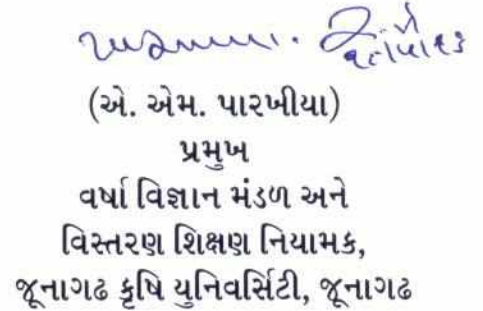 (એ. એમ. પારખીયા)
પ્રમુખ
વર્ષા વિજ્ઞાન મંડળ અને
વિસ્તરણ શિક્ષણ નિયામક,
જૂનાગઢ કૃષિ યુનિવર્સિટી, જૂનાગઢ